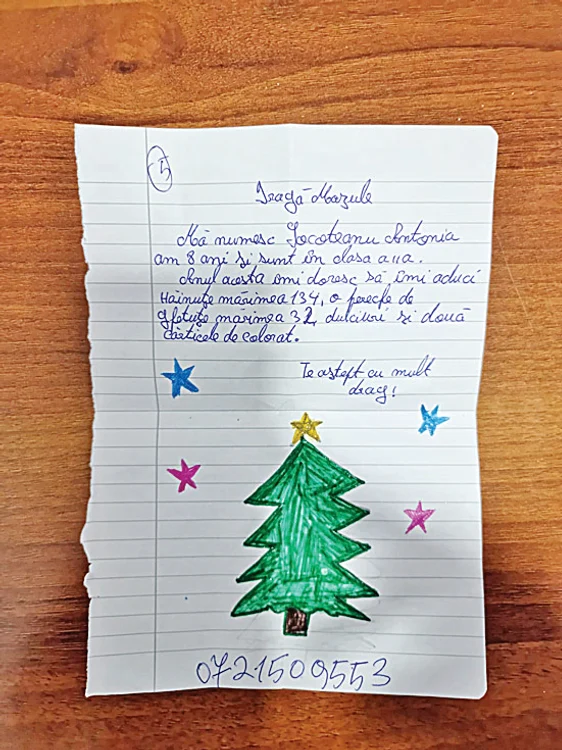 5
Dragă Moșule
Mă numesc Jocoteanu Antonia
am 8 ani și sunt în clasa a IIa.
Anul acesta îmi doresc să îmi aduci
Hăinuțe mărimea 134, o pereche de
ghetuțe mărimea 32, dulciuri și două
cărticele de colorat.
Te aștept cu mult
drag!
0721509553